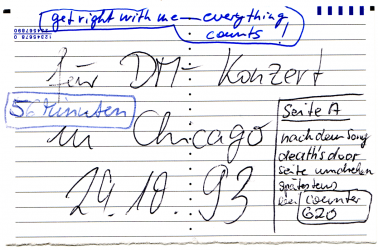 get right with me - everything
counts!
1234567890
1234567890
für DM- Konzert
56 Minuten
in Chicago
29.10.93
Seite A
nach dem Song
death's door
Seite umdrehen
spätestens
bei counter
620